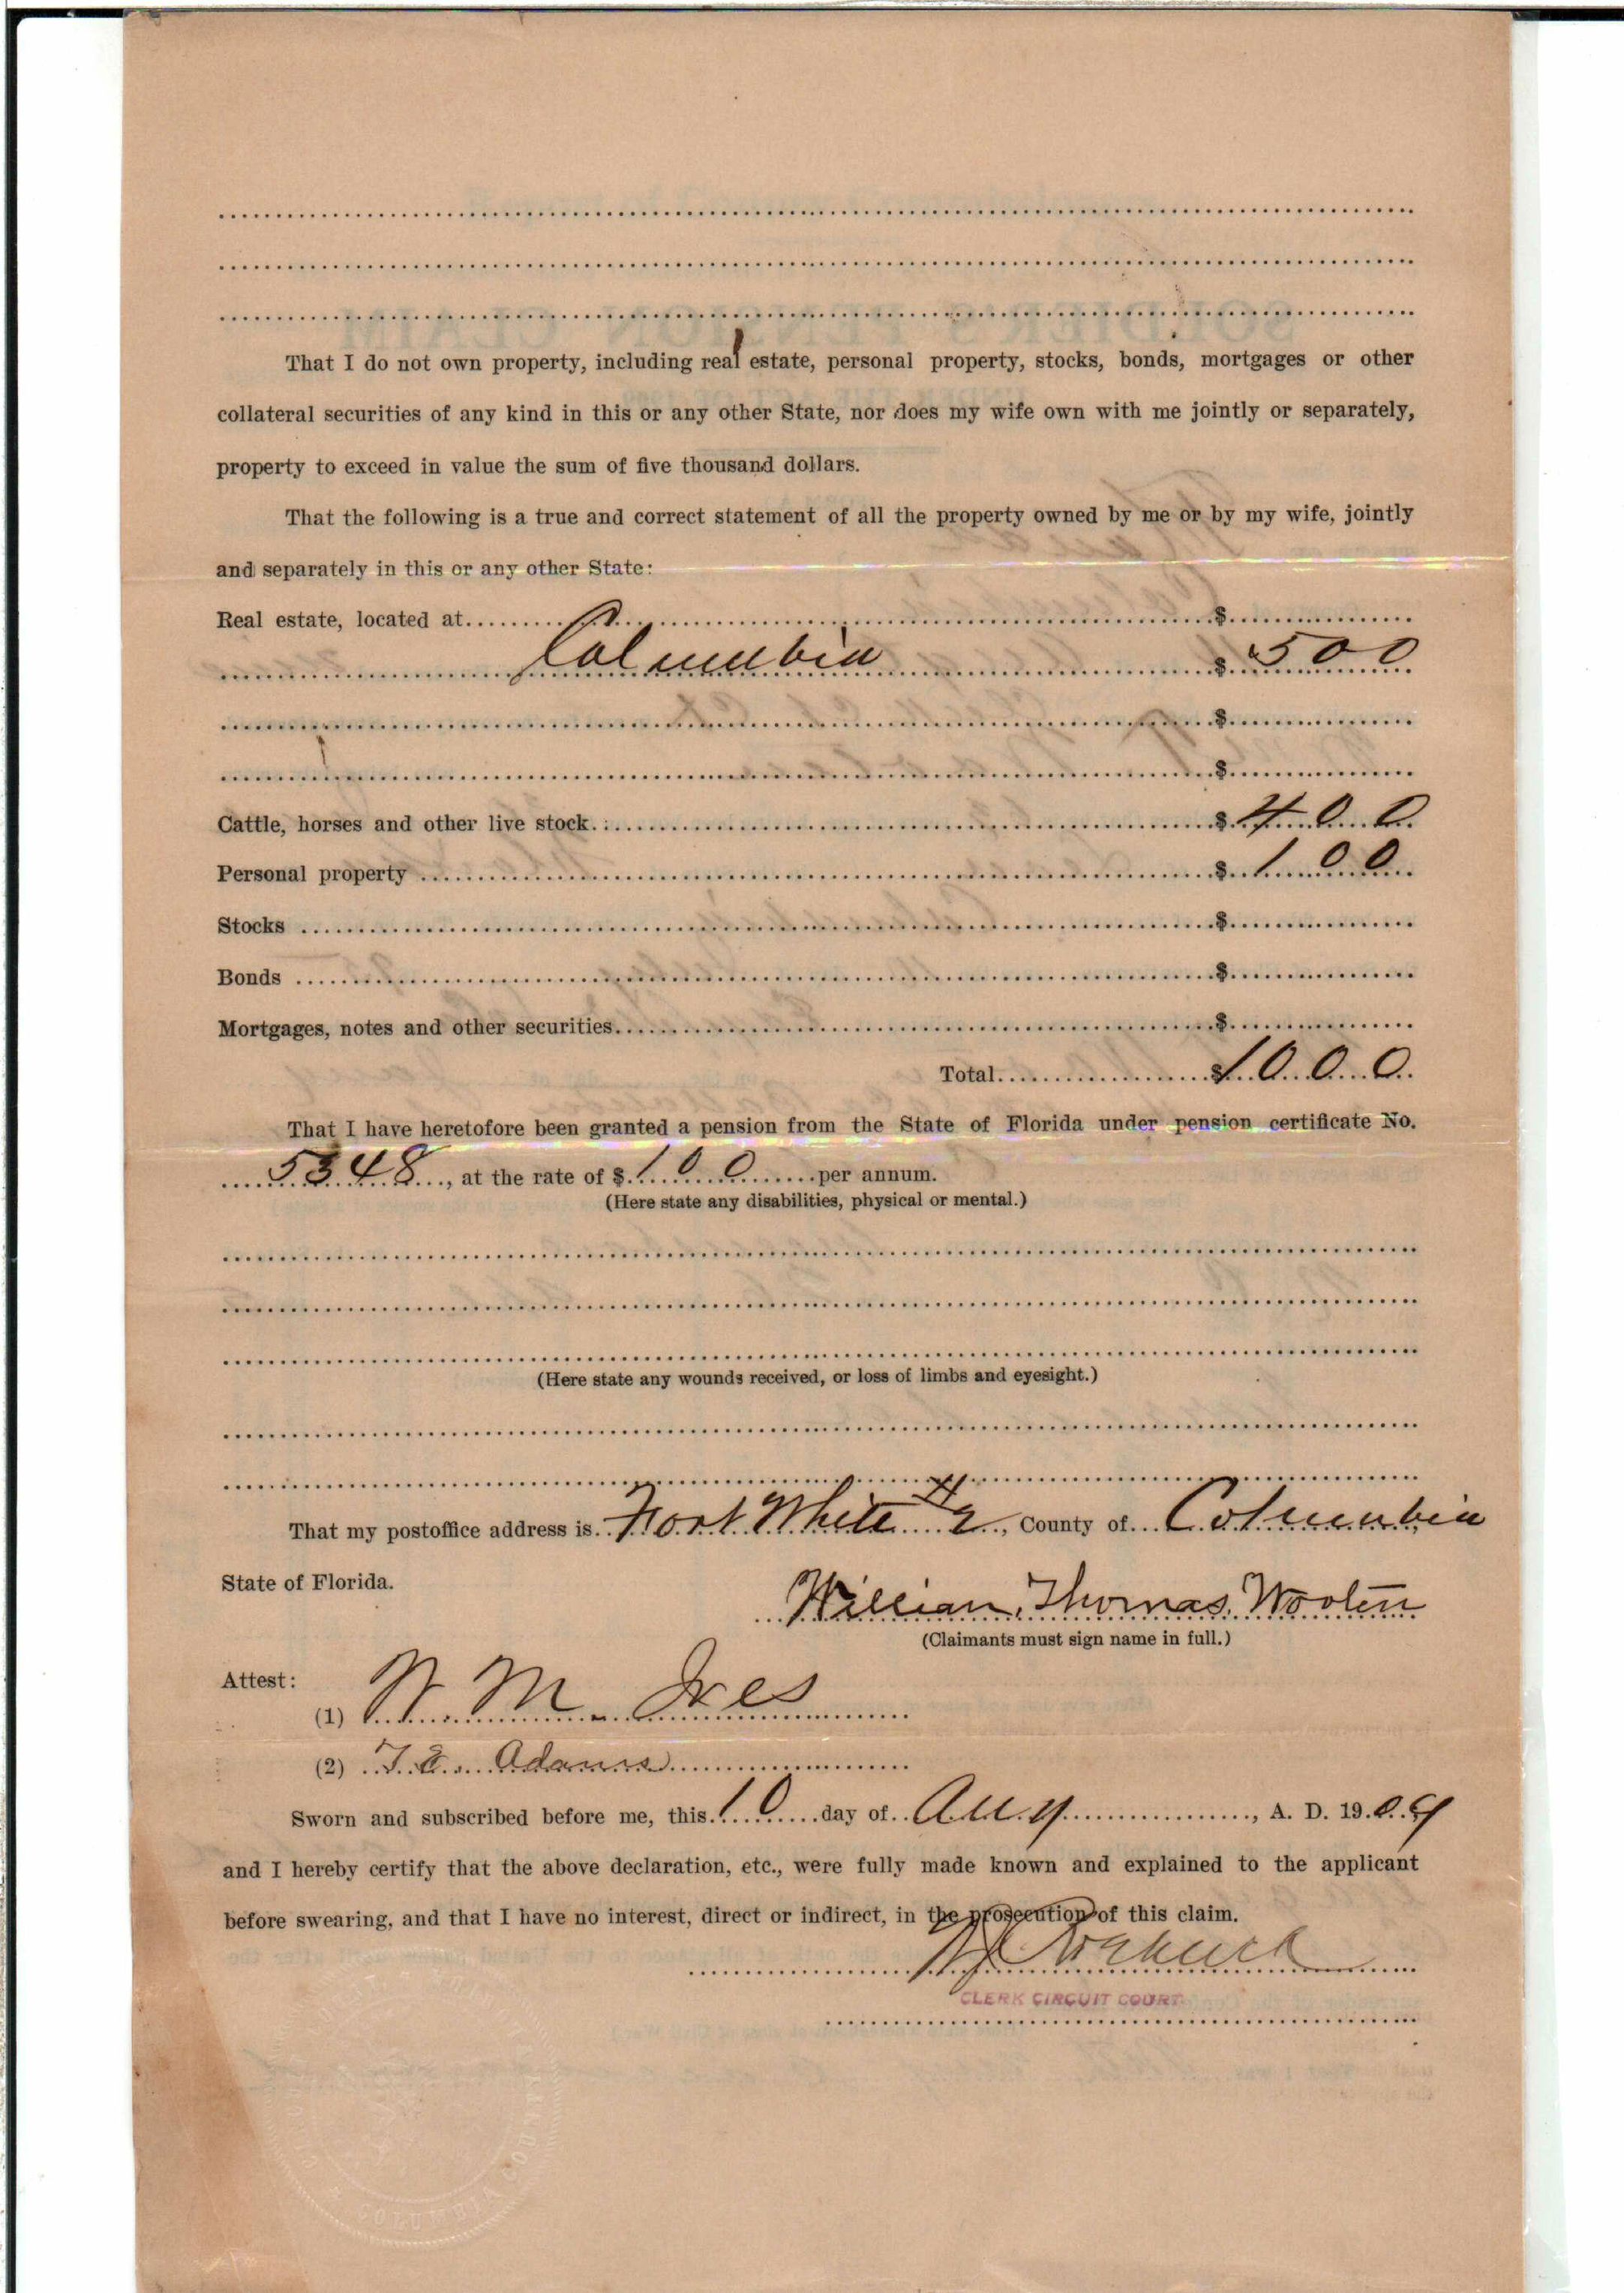 That I do not own property, including real estate, personal property, stocks, bonds, mortgages or other
collateral securities of any kind in this or any other State, nor does my wife own with me jointly or separately,
property to exceed in value the sum of five thousand dollars.
That the following is a true and correct statement of all the property owned by me or by my wife, jointly
and separately in this or any other State:
Real estate, located at $
Columbia $ 500
$
$
Cattle, horses and other live stock. $ 400
Personal property $ 100
Stocks $
Bonds $
Mortgages, notes and other securities. $
Total $ 1000
That I have heretofore been granted a pension from the State of Florida under pension certificate No.
5348, at the rate of $ 100 per annum.
(Here state any disabilities, physical or mental.)
(Here state any wounds received, or loss of limbs and eyesight.)
That my postoffice address is Fort White #2, County of Columbia
State of Florida.
William Thomas Wooten
(Claimants must sign name in full.)
Attest:
(1) W. M. Ives
(2) T. E. Adams
Sworn and subscribed before me, this 10 day of Aug, A. D. 1909
and I hereby certify that the above declaration, etc., were fully made known and explained to the applicant
before swearing, and that I have no interest, direct or indirect, in the prosecution of this claim.
CLERK CIRCUIT COURT
COLUMBIA COUNTY